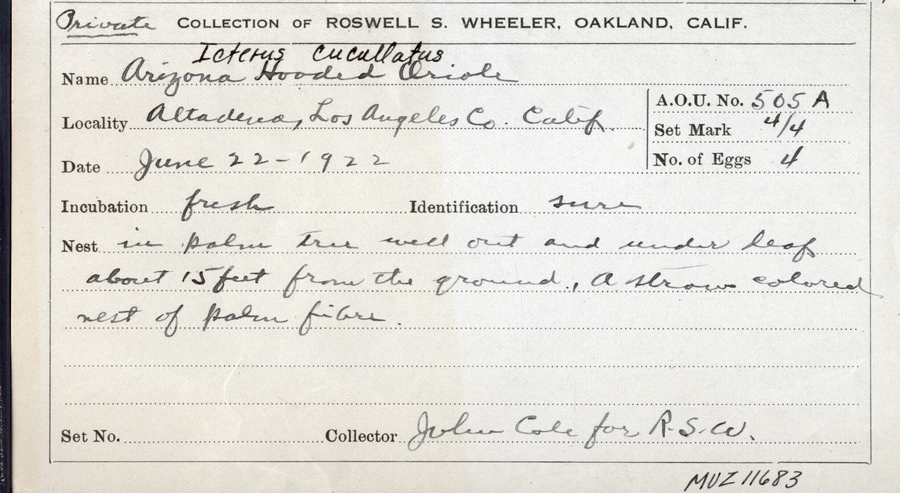 Private COLLECTION OF ROSWELL S. WHEELER, OAKLAND, CALIF.
Icterus cucullatus
Name Arizona Hooded Oriole
A.O.U. No. 505 A
Locality Altadena, Los Angeles Co. Calif.
Set Mark 4/4
Date June 22-1922
No. of Eggs 4
Incubation fresh Identification sure
Nest in palm tree well out and under leaf
about 15 feet from the ground., A straw colored
nest of palm fibre.
Set No. Collector John Cole for R.S.W.
MVZ 11683